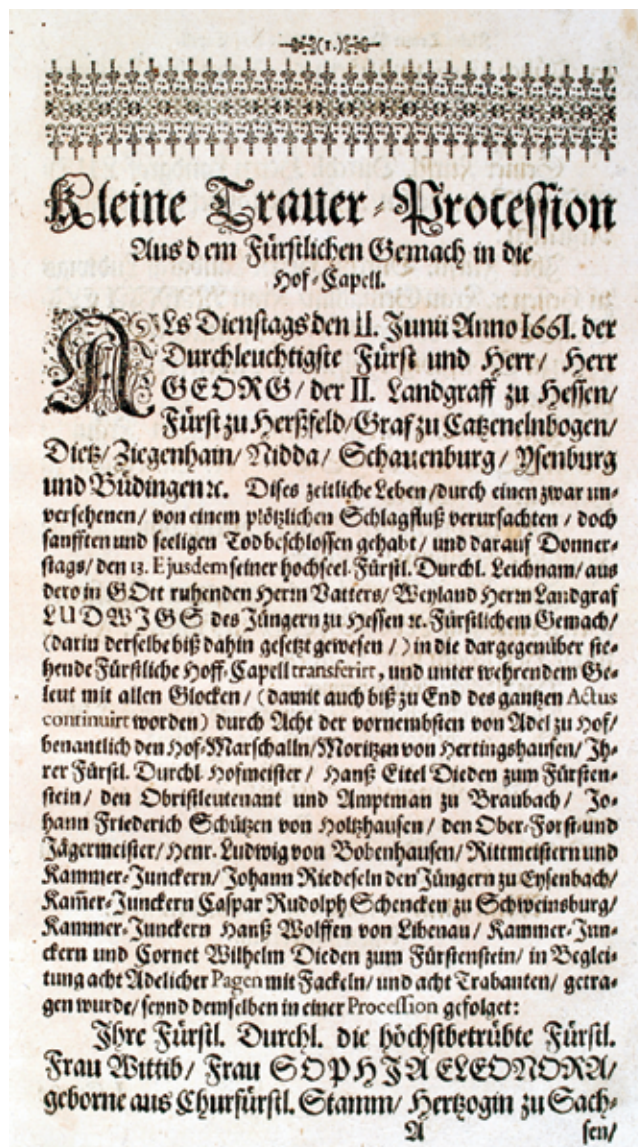 (1.)
Kleine Trauer-Procession
Aus dem Fürstlichen Gemach in die
Hof-Capell.
ALs Dienstags den 11. Junii Anno 1661. der
Durchleuchtigste Fürst und Herr/ Herr
GEORG/ der II. Landgraff zu Hessen/
Fürst zu Herßfeld/Graf zu Catzenelnbogen/
Dietz/Ziegenhain/Nidda/ Schauenburg/Ysenburg
und Büdingen ꝛc. Dises zeitliche Leben/durch einen zwar un-
versehenen/ von einem plötzlichen Schlagfluß verursachten / doch
sanfften und seeligen Tod beschlossen gehabt/ und darauf Donner-
stags/ den 13. Ejusdem seiner hochseel. Fürstl. Durchl. Leichnam/aus
dero in GOtt ruhenden Herrn Vatters/Weyland Herrn Landgraf
LUDWIGS des Jüngern zu Hessen ꝛc. Fürstlichem Gemach/
(darin derselbe biß dahin gesetzt gewesen / ) in die dargegenüber ste-
hende Fürstliche Hoff-Capell transferirt, und unter wehrendem Ge-
leut mit allen Glocken/ (damit auch biß zu End des gantzen Actus
continuirt worden) durch Acht der vornembsten von Adel zu Hof/
benantlich den Hof-Marschalln/Moritzen von Hertingshausen/ Ih-
rer Fürstl. Durchl. Hofmeister / Hanß Eitel Dieden zum Fürsten-
stein/ den Obristleutenant und Amptman zu Braubach/ Jo-
hann Friederich Schützen von Holtzhausen / den Ober-Forst-und
Jägermeister/Henr. Ludwig von Bobenhausen/Rittmeistern und
Kammer-Junckern/Johann Riedeseln den Jüngern zu Eysenbach/
Kam̃er-Junckern Caspar Rudolph Schencken zu Schweinsburg/
Kammer-Junckern Hanß Wolffen von Libenau/ Kammer-Jun-
ckern und Cornet Wilhelm Dieden zum Fürstenstein/ in Beglei-
tung acht Adelicher Pagen mit Fackeln/ und acht Trabanten/ getra-
gen wurde/seynd demselben in einer Procession gefolget:
Ihre Fürstl. Durchl. die höchstbetrübte Fürstl.
Frau Wittib/ Frau SOPHIA ELEONORA/
geborne aus Churfürstl. Stamm/ Hertzogin zu Sach-
A sen/